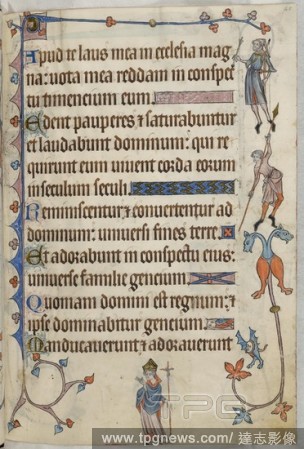 Apud te laus mea in ecclesia mag
na: uota mea reddam in conspec
tu timencium eum.
Edent pauperes & saturabuntur
et laudabunt dominum: qui re
qurunt eum uiuent corda eorum
in seculum seculi.
Reminiscentur & conuertentur ad
dominum: uniuersi fines terre.
Et adorabunt in conspectu eius:
uniuerse familie gencium.
Quoniam domini est regnum: &
ipse dominabitur gencium.
Manducauerunt & adorauerunt
TPG
www.tpgnews.com/達志影像